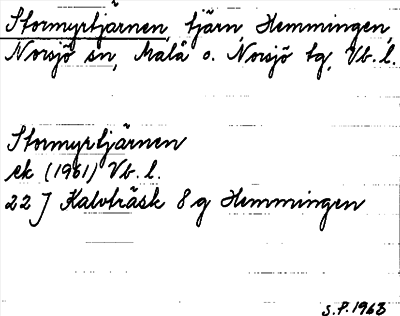 Stormyrtjärnen, tjärn, Hemmingen,
Norsjö sn, Malå o. Norsjö tg, Vb. l.
Stormyrtjärnen
ek (1961) Vb. l.
22 J Kalvträsk 8 g Hemmingen
S.P. 1968